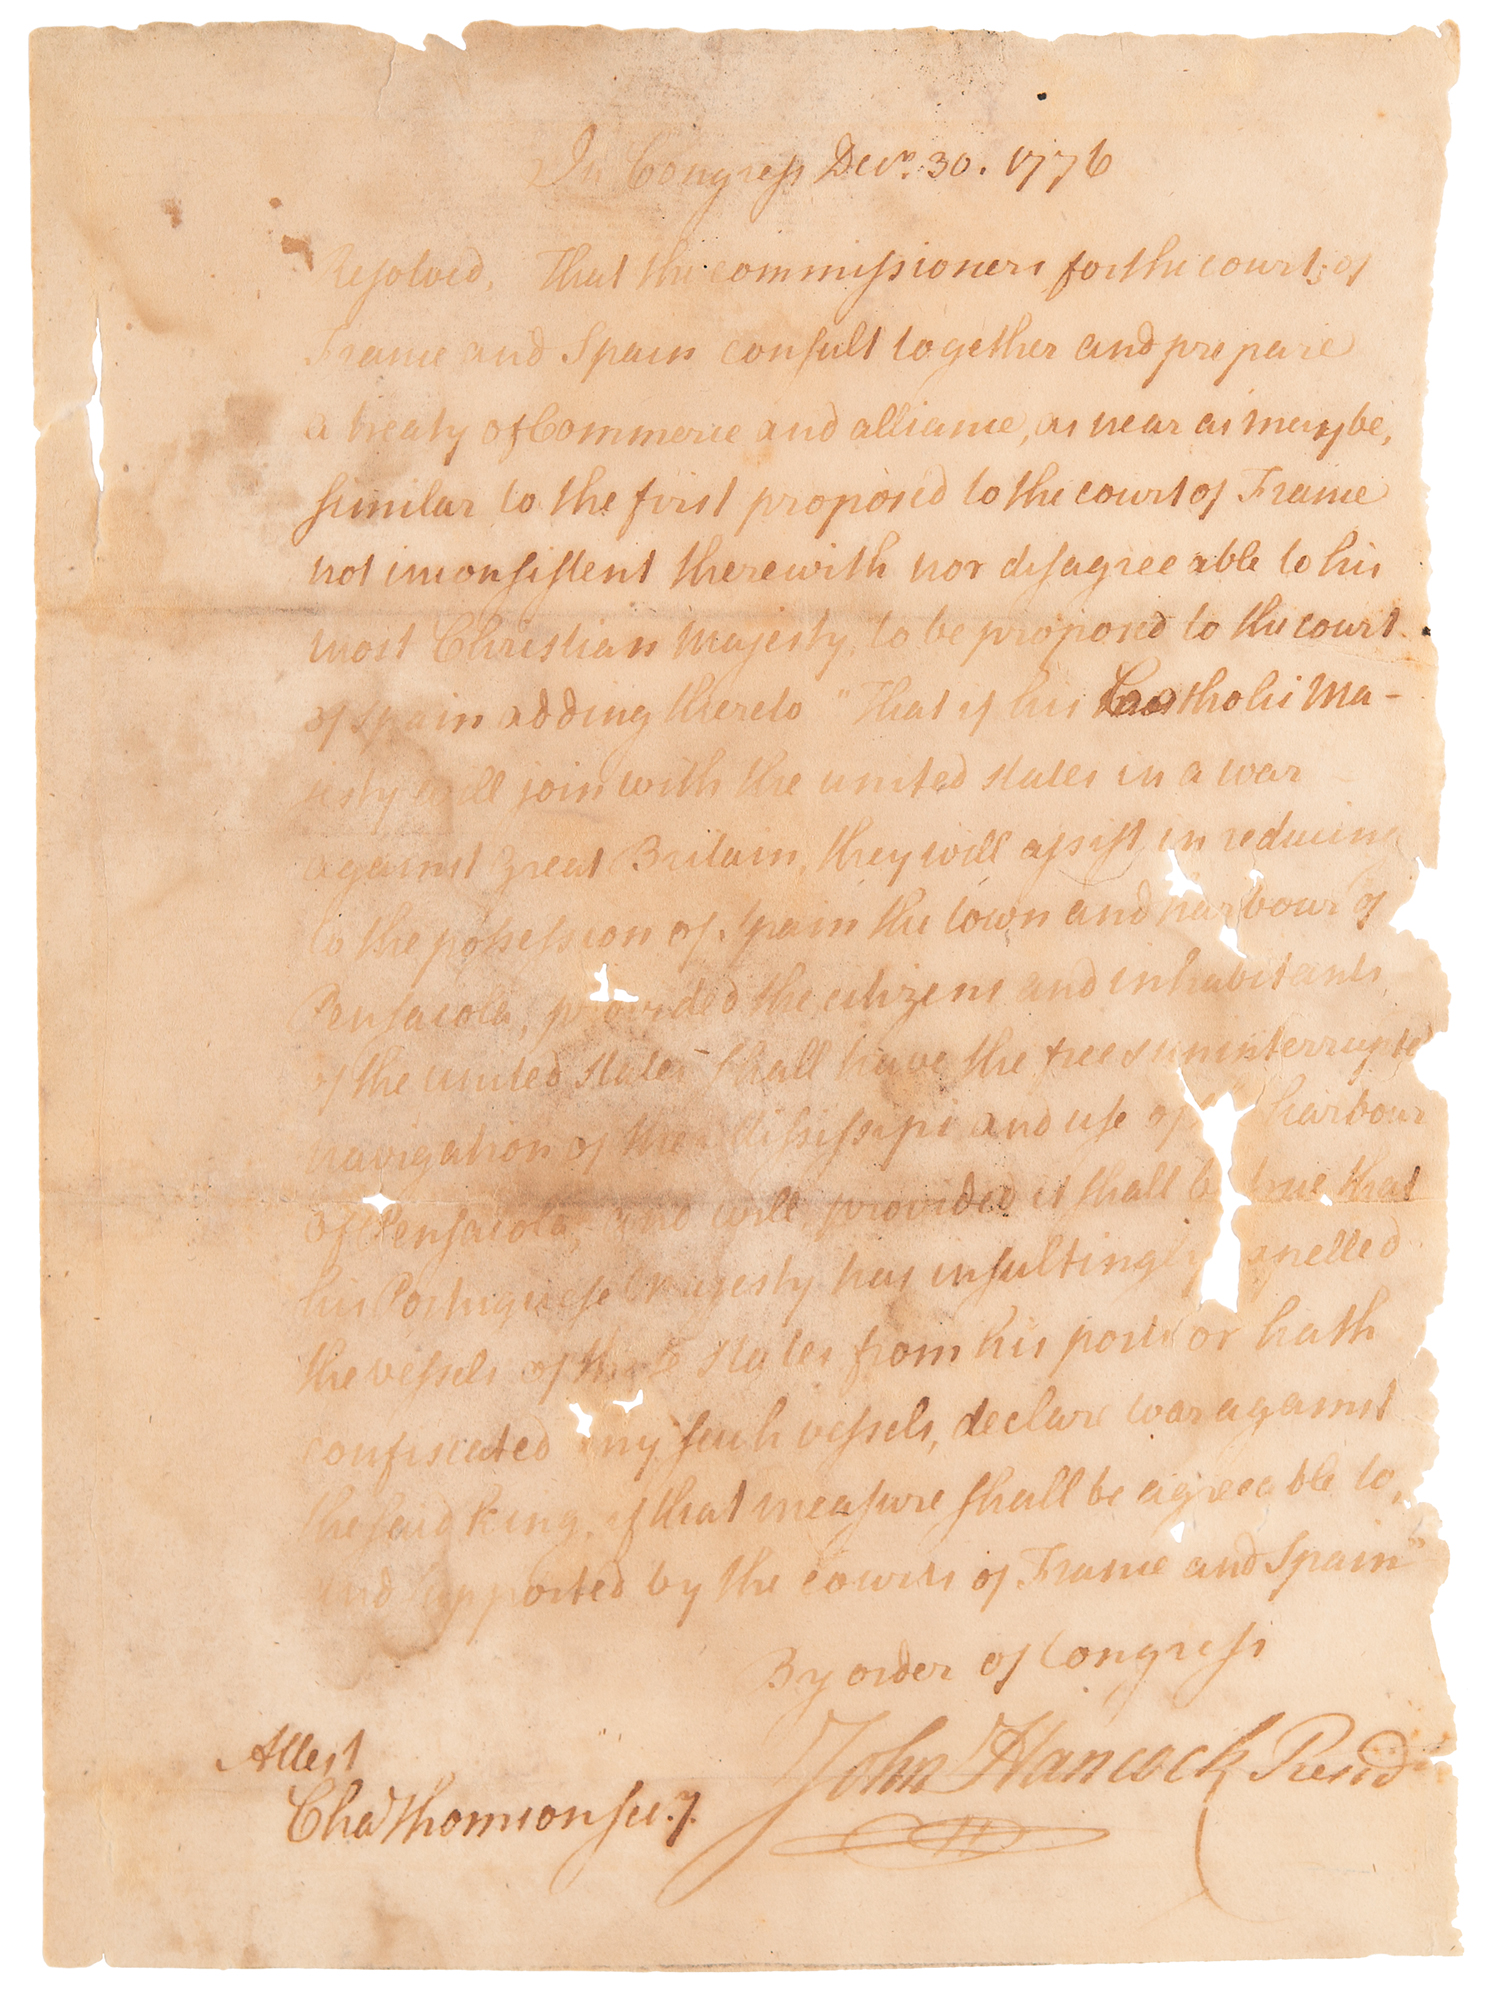 In Congress Decr. 30. 1776
Resolved, That the commissioners for the courts of
France and Spain consult together and prepare
a treaty of Commerce and alliance, as near as may be,
similar to the first proposed to the court of France
not inconsistent therewith nor disagreeable to his
most Christian Majesty, to be proposed to the court
of Spain adding thereto "That if his Catholic Ma-
jesty will join with the united states in a war
against Great Britain, they will assist in reducing
to the possession of Spain the town and harbour of
Pensacola, provided the citizens and inhabitants
of the united states shall have the free & uninterrupted
navigation of the Missisippi and use of harbour
of Pensacola, and will, provided it shall be true that
his Portuguese Majesty has insultingly expelled
the vessels of these states from his ports or hath
confiscated any such vessels, declare war against
the said king, if that measure shall be agreeable to,
and supported by the courts of France and Spain"
By order of Congress
John Hancock Presid
Attest
Chas Thomson secy.